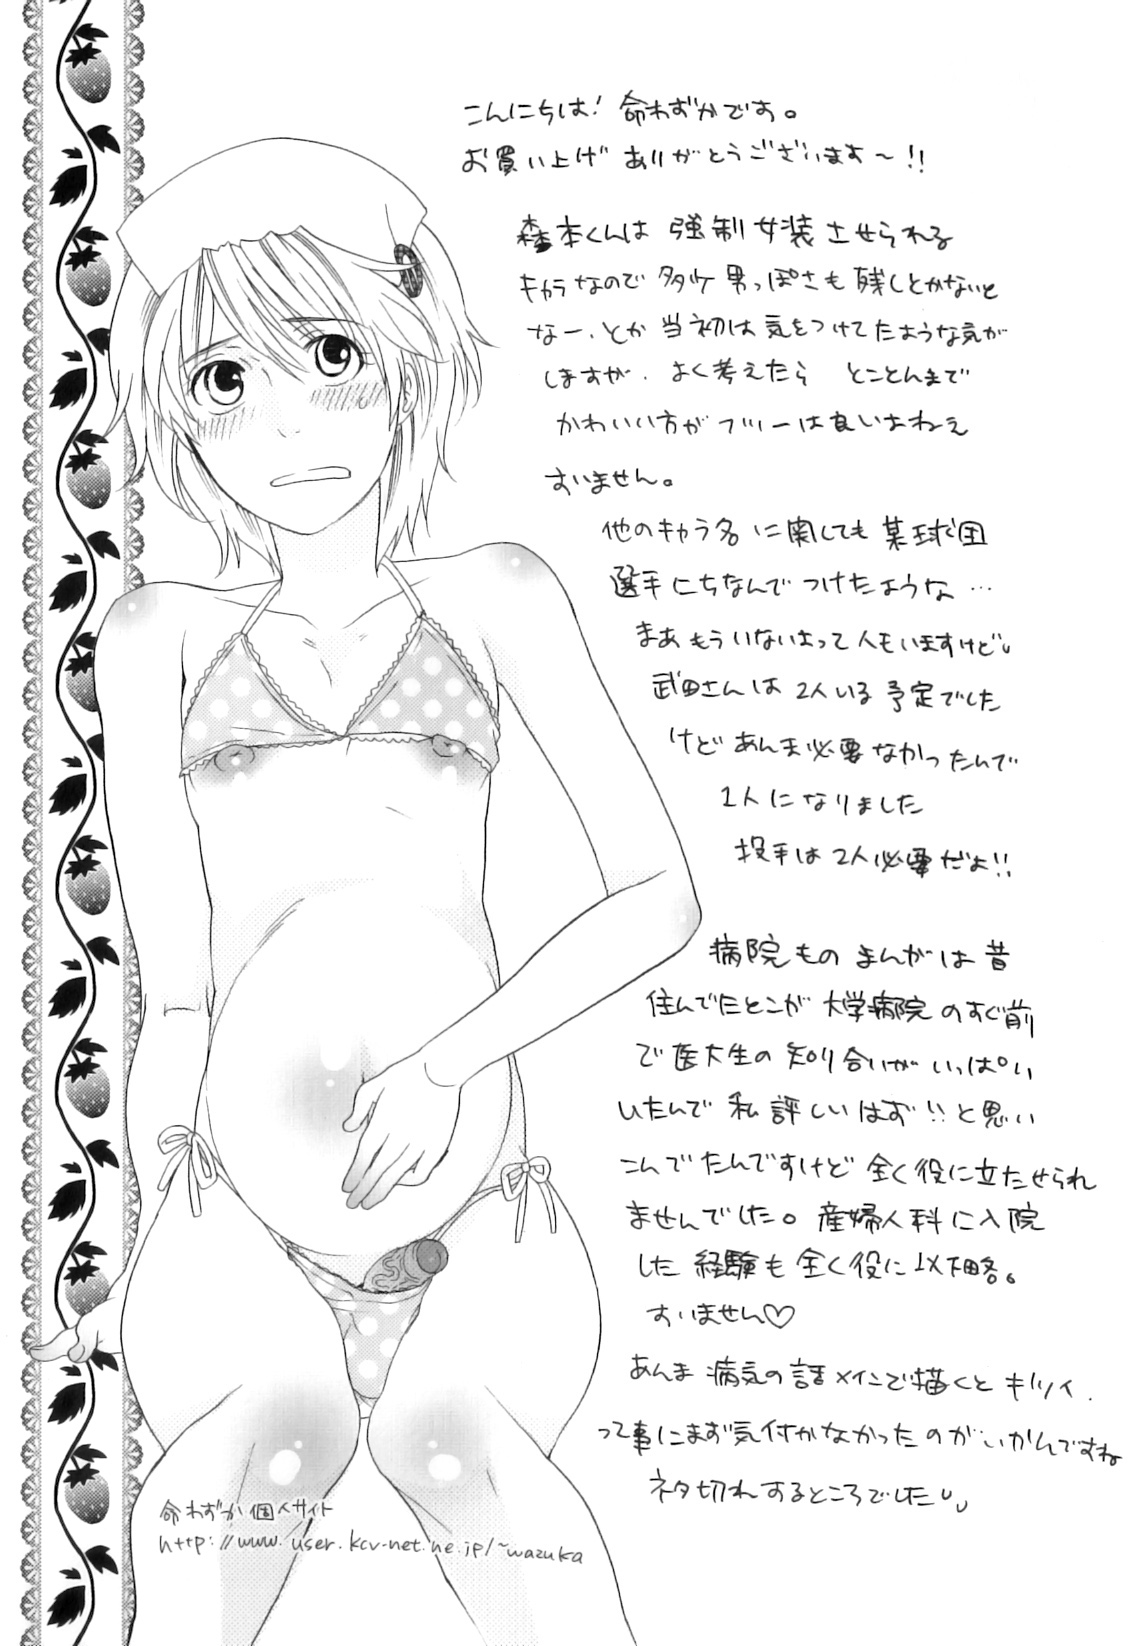 こんにちは!命わずかです。
お買い上げありがとうございます〜!!
森本くんは強制女装させられる
キャラなので多少男っぽさも残しとかないと
なー、とか当初は気をつけてたような気が
しますが、よく考えたらとことんまで
かわいい方がフツーは良いよねぇ
すいません。
他のキャラ名に関しても某球団
選手にちなんでつけたような…
まあもういないよって人もいますけど
武田さんは2人いる予定でした
けどあんま必要なかったんで
1人になりました
投手は2人必要だよ!!
病院ものまんがは昔
住んでたとこが大学病院のすぐ前
で医大生の知り合いがいっぱい
いたんで私詳しいはず!!と思い
こんでたんですけど全く役に立たせられ
ませんでした。産婦人科に入院
した経験も全く役に以下略。
すいません♡
あんま病気の話メインで描くとキツイ、
って事にまず気付かなかったのがいかんですね
ネタ切れするところでした
命わずか個人サイト
http://www.user.kcv-net.ne.jp/~wazuka